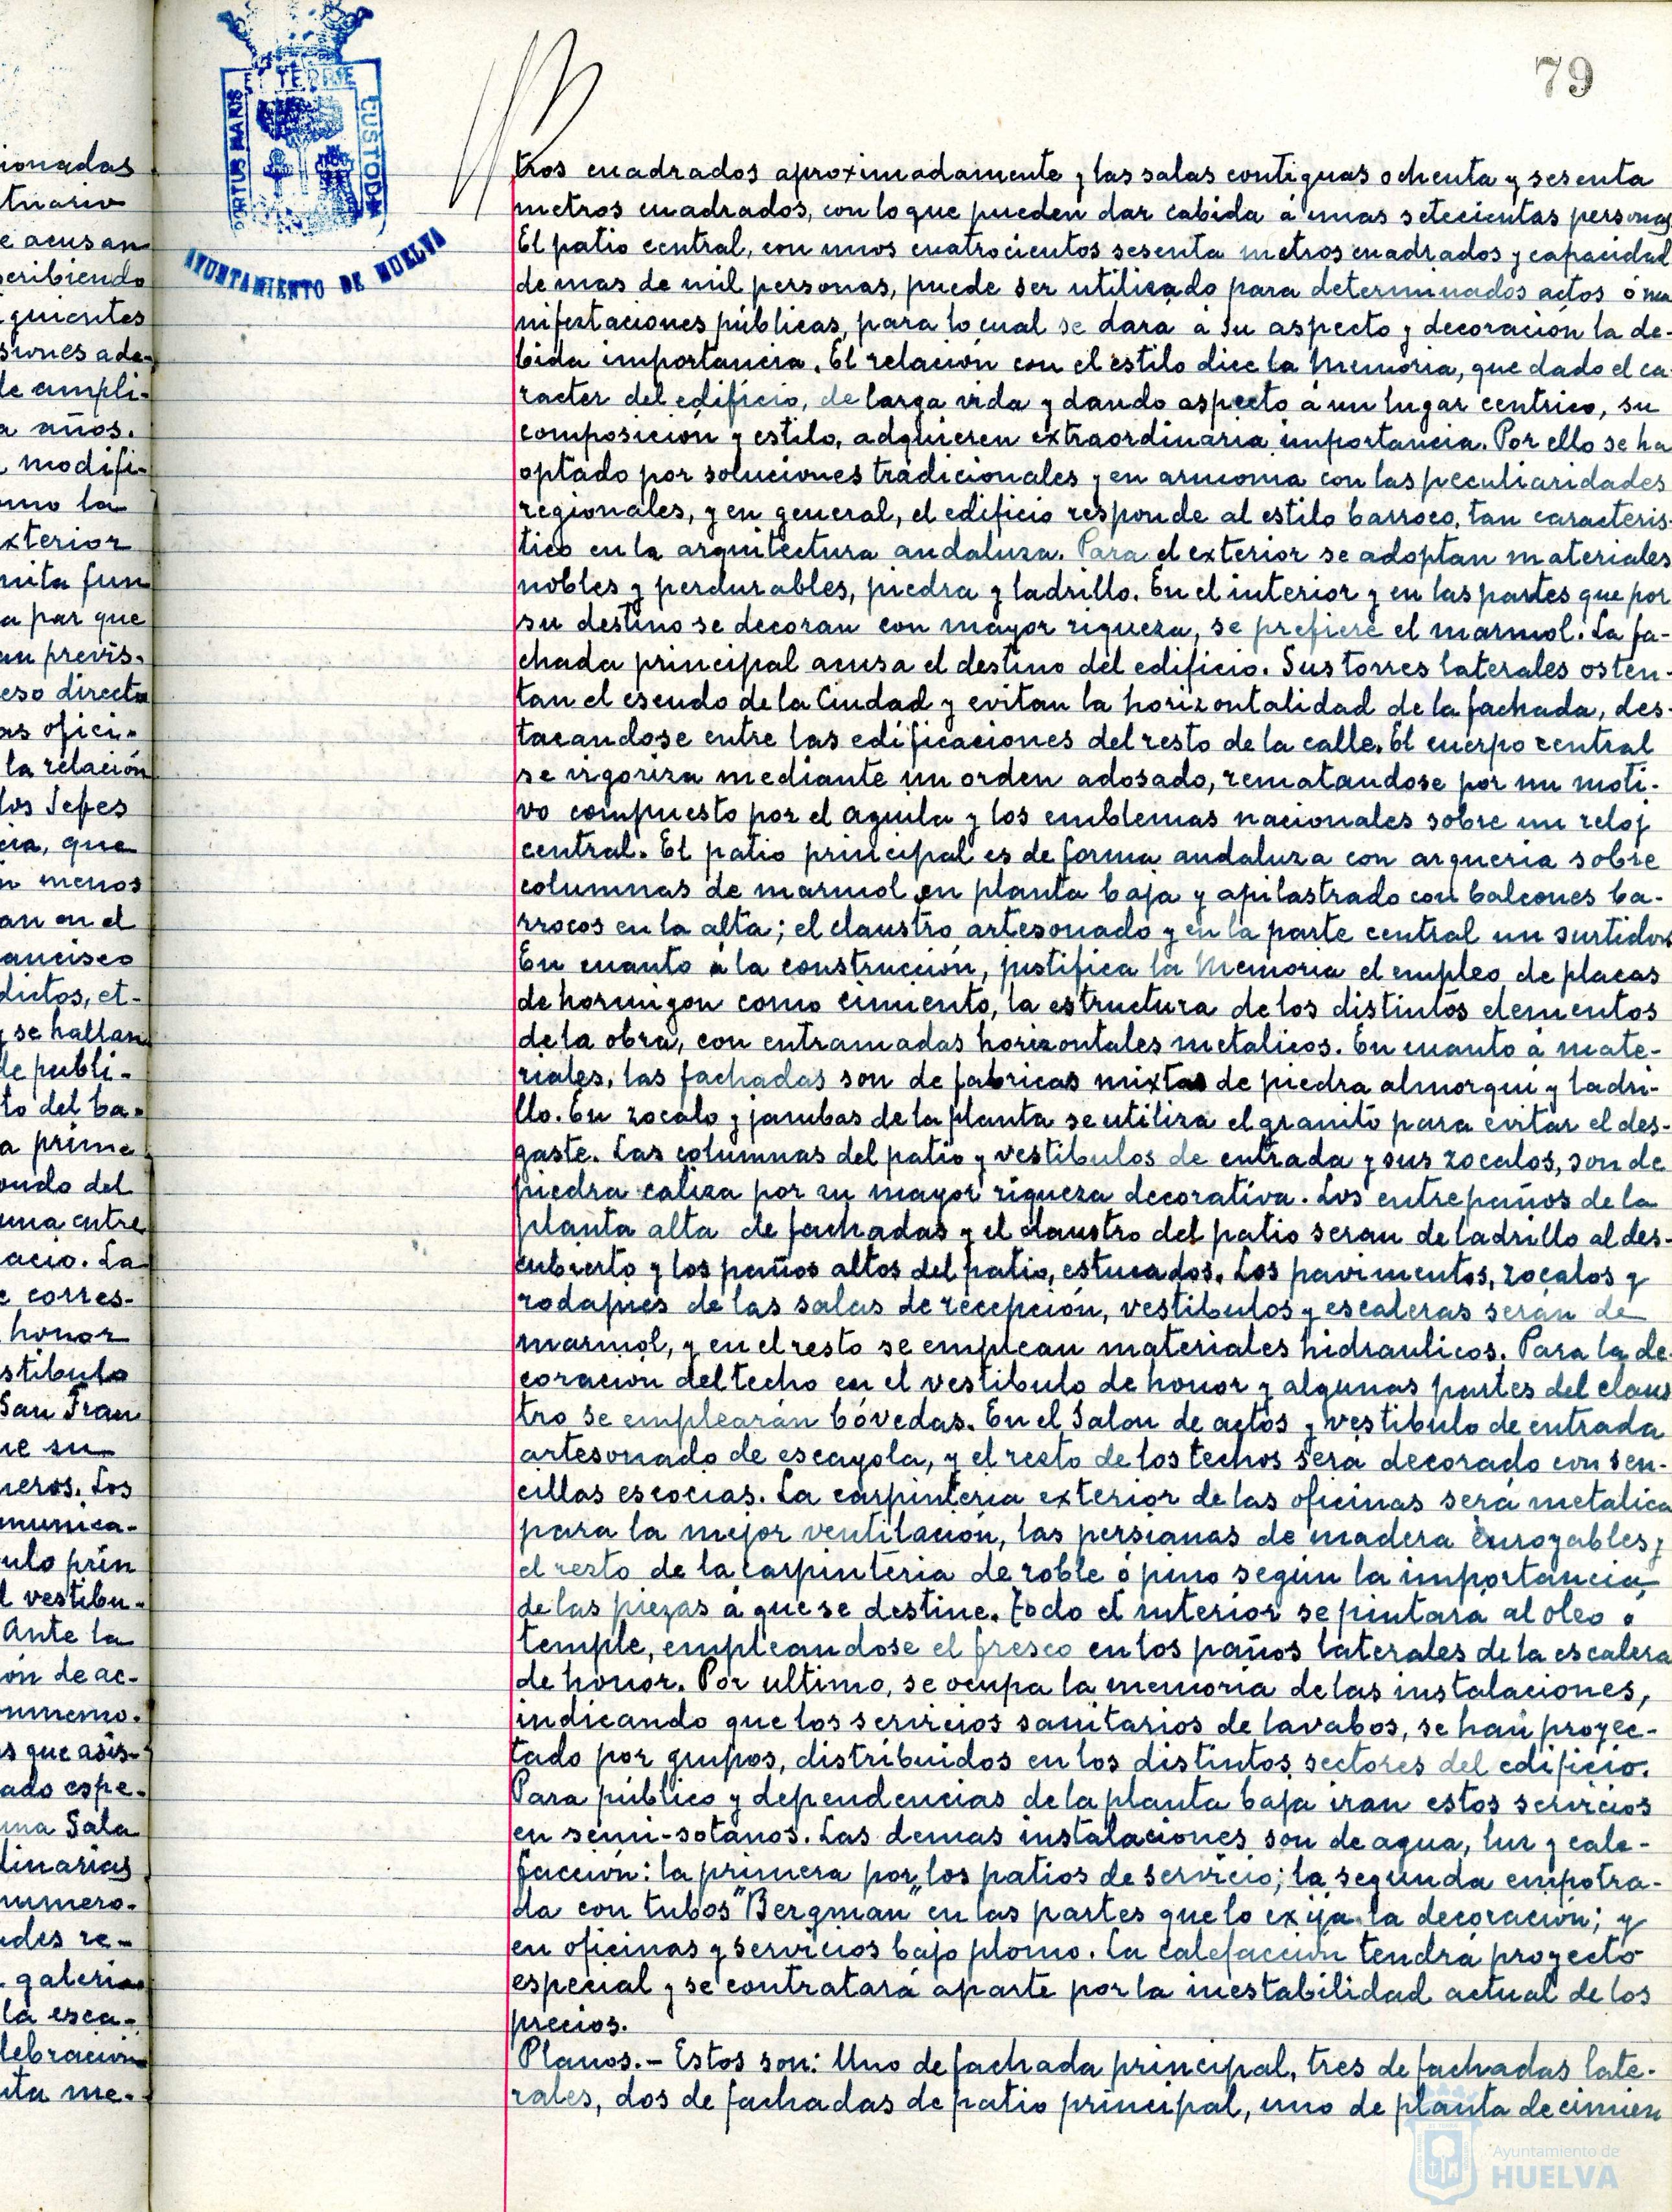 79
PORTUS MARIS
ET TERRE
CUSTODIA
AYUNTAMIENTO DE HUELVA
tros cuadrados aproximadamente y las salas contiguas ochenta y sesenta
metros cuadrados, con lo que pueden dar cabida á unas setecientas personas
El patio central, con unos cuatrocientos sesenta metros cuadrados y capacidad
de mas de mil personas, puede ser utilizado para determinados actos ó ma
nifestaciones públicas, para lo cual se dará á su aspecto y decoración la de-
bida importancia. El relación con el estilo dice la Memoria, que dado el ca-
racter del edificio, de larga vida y dando aspecto á un lugar centrico, su
composición y estilo, adquieren extraordinaria importancia. Por ello se ha
optado por soluciones tradicionales y en armonia con las peculiaridades
regionales, y en general, el edificio responde al estilo barroco, tan caracteris-
tico en la arquitectura andaluza. Para el exterior se adoptan materiales
nobles y perdurables, piedra y ladrillo. En el interior y en las partes que por
su destino se decoran con mayor riqueza, se prefiere el marmol. La fa-
chada principal acusa el destino del edificio. Sus torres laterales osten-
tan el escudo de la Ciudad y evitan la horizontalidad de la fachada, des-
tacandose entre las edificaciones del resto de la calle. El cuerpo central
se vigoriza mediante un orden adosado, rematandose por un moti-
vo compuesto por el aguila y los emblemas nacionales sobre un reloj
central. El patio principal es de forma andaluza con arqueria sobre
columnas de marmol en planta baja y apilastrado con balcones ba-
rrocos en la alta; el claustro artesonado y en la parte central un surtidor
En cuanto á la construcción, justifica la Memoria el empleo de placas
de hormigon como cimiento, la estructura de los distintos elementos
de la obra, con entramadas horizontales metalicos. En cuanto á mate-
riales, las fachadas son de fabricas mixtas de piedra almorqui y ladri-
llo. En zocalo y jambas de la planta se utiliza el granito para evitar el des-
gaste. Las columnas del patio y vestibulos de entrada y sus zocalos, son de
piedra caliza por su mayor riqueza decorativa. Los entrepaños de la
planta alta de fachadas y el claustro del patio seran de ladrillo al des-
cubierto y los paños altos del patio, estucados. Los pavimentos, zocalos y
rodapies de las salas de recepción, vestibulos y escaleras serán de
marmol, y en el resto se emplean materiales hidraulicos. Para la de-
coración del techo en el vestibulo de honor y algunas partes del claus
tro se emplearán bóvedas. En el Salon de actos y vestibulo de entrada
artesonado de escayola, y el resto de los techos será decorado con sen-
cillas escocias. La carpinteria exterior de las oficinas será metalica
para la mejor ventilación, las persianas de madera enroyables y
el resto de la carpinteria de roble ó pino según la importancia
de las piezas á que se destine. Todo el interior se pintará al oleo ó
temple, empleandose el fresco en los paños laterales de la escalera
de honor. Por ultimo, se ocupa la memoria de las instalaciones,
indicando que los servicios sanitarios de lavabos, se han proyec-
tado por grupos, distribuidos en los distintos sectores del edificio.
Para público y dependencias de la planta baja iran estos servicios
en semi-sotanos. Las demas instalaciones son de agua, luz y cale-
facción: la primera por los patios de servicio; la segunda empotra-
da con tubos "Bergman" en las partes que lo exija la decoración; y
en oficinas y servicios bajo plomo. La calefacción tendrá proyecto
especial y se contratará aparte por la inestabilidad actual de los
precios.
Planos.- Estos son: Uno de fachada principal, tres de fachadas late-
rales, dos de fachadas de patio principal, uno de planta de cimien
Ayuntamiento de
HUELVA